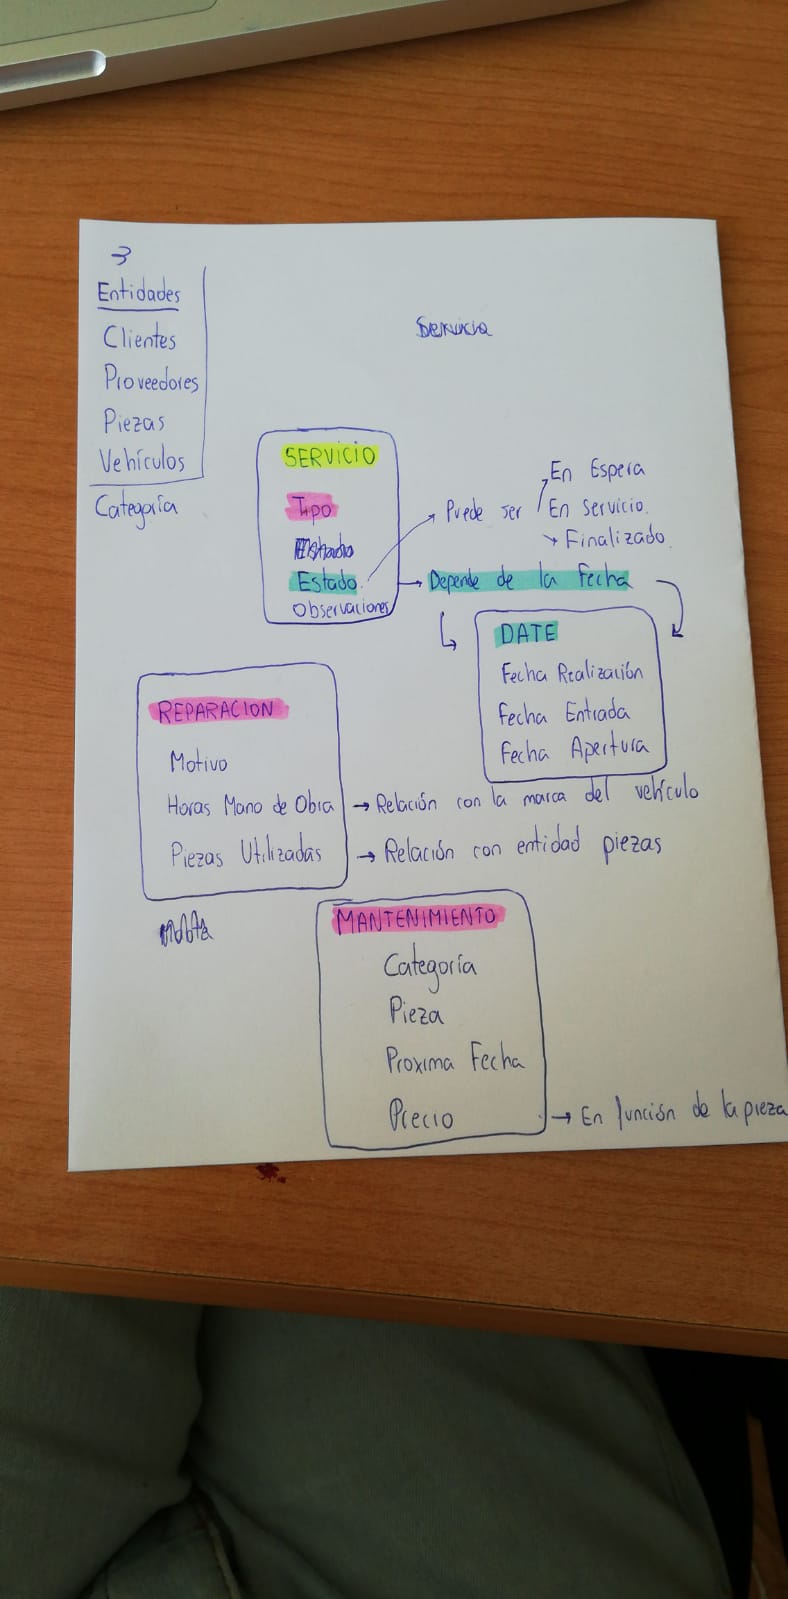 3
Entidades
Clientes
Proveedores
Piezas
Vehículos
Categoría
Servicio
SERVICIO
Tipo
Estado
Observaciones
Puede ser
En Espera
En Servicio.
Finalizado
Depende de la Fecha
DATE
Fecha Realización
Fecha Entrada
Fecha Apertura
REPARACION
Motivo
Horas Mano de Obra → Relación con la marca del vehículo
Piezas Utilizadas → Relación con entidad piezas
MANTENIMIENTO
Categoría
Pieza
Proxima Fecha
Precio → En función de la pieza